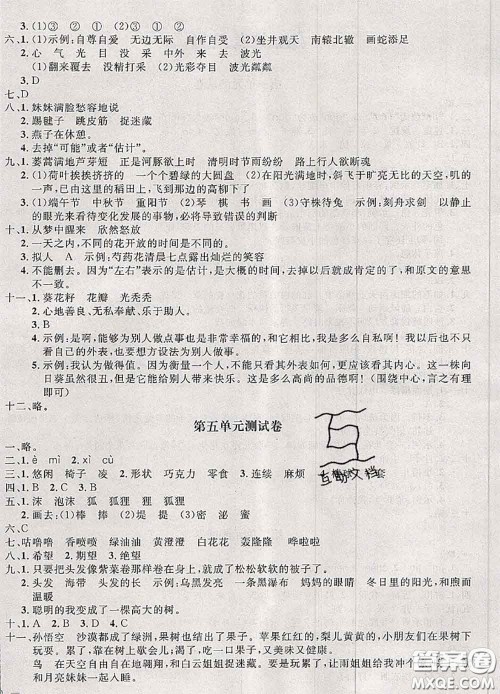 3.(1)③  ②  (2)③  ①
六、1.(1)示例:自尊自爱  无边无际  自作自受  (2)坐井观天  南辕北辙  画蛇添足
2.心  气  光  目  示例:
(1)翻来覆去  没精打采  (2)光彩夺目  波光粼粼
3.D
七、D
八、1.妹妹满脸愁容地说
2.踢毽子  跳皮筋  捉迷藏
3.燕子在休憩。
4.去掉“可能”或者“估计”。
九、1.蒌蒿满地芦芽短  正是河豚欲上时  清明时节雨纷纷  路上行人欲断魂
2.(1)荷叶挨挨挤挤的  一个个碧绿的大圆盘  (2)在阳光满地时,斜飞于旷亮无比的天空,叽的一声,已由这里的稻田上,飞到那边的高柳下了
3.(1)端午节  中秋节  重阳节  (2)琴  棋  书  画  (3)守株待兔  示例:刻舟求剑  以静止的眼光来看待变化发展的事情,必将导致错误的判断
十、1.从梦中醒来  欣然怒放
2.一天之内,不同的花开放的时间是不同的。
3.拟人  A  示例:芍药花清晨七点露出灿烂的笑容
4.不能删去。因为“左右”表示的是估计,是大概的时间,去掉以后就太肯定了,和原文的意思不一致。
十一、1.葵花籽  花瓣  光秃秃
2.心地善良、无私奉献、乐于助人。
3.B
4.示例:是啊,能够为别人做点事也是非常幸福的,和它相比,我是多么自私啊!我今后再也不只看自己的外表,也要想着为别人做事。
5.示例:我认为很美。因为衡量一个人,不能光只看其外表如何,更应该看其内心。这一株向日葵虽然很丑,但是它能给别人带来快乐。这是多么高尚的品德啊!(围绕中心,言之有理即可)
十二、略。
第五单元测试卷
一、略。
二、1.è  mì  2.xì  cù
三、1.悠闲  椅子  凌  2.形状  巧克力  零食  3.连续  麻烦
四、1.B  2.C  3.B  4.B
五、1.沫  泡沫  狐  狐狸  狸  狐狸
2.画去:(1)捧  棒  (2)堤  提  (3)密  泌  蜜
六、C
七、咕噜噜  香喷喷  绿油油  黄澄澄  白花花  轰隆隆  哗啦啦
八、1.希望  2.期望  3.绝望
九、1.只要把头像紫菜卷那样卷在身上,就成了松松软软的被子了。
2.头发  海带  头发  海带  示例:乌黑亮丽的头发  一袭黑瀑布  妈妈的眼睛  冬日里的阳光,和煦而温暖
3.聪明的我变成了一棵高大的树。
十、1.A  2.B  3.D
十一、孙悟空  沙漠都成了绿洲,果树也结出了果子。苹果红红的,梨儿黄黄的,小朋友们在果树下玩玩耍耍,吃一口果子,嘻嘻一笑,甜到了心里。
鸟  在天空自由自在地翱翔,和白云姐姐捉迷藏。下雨了,淋湿了羽毛也不怕,让雨姐姐给我洗澡,和月亮妹妹一起看满天星。
互助文档
答案圈
MXQE.COM